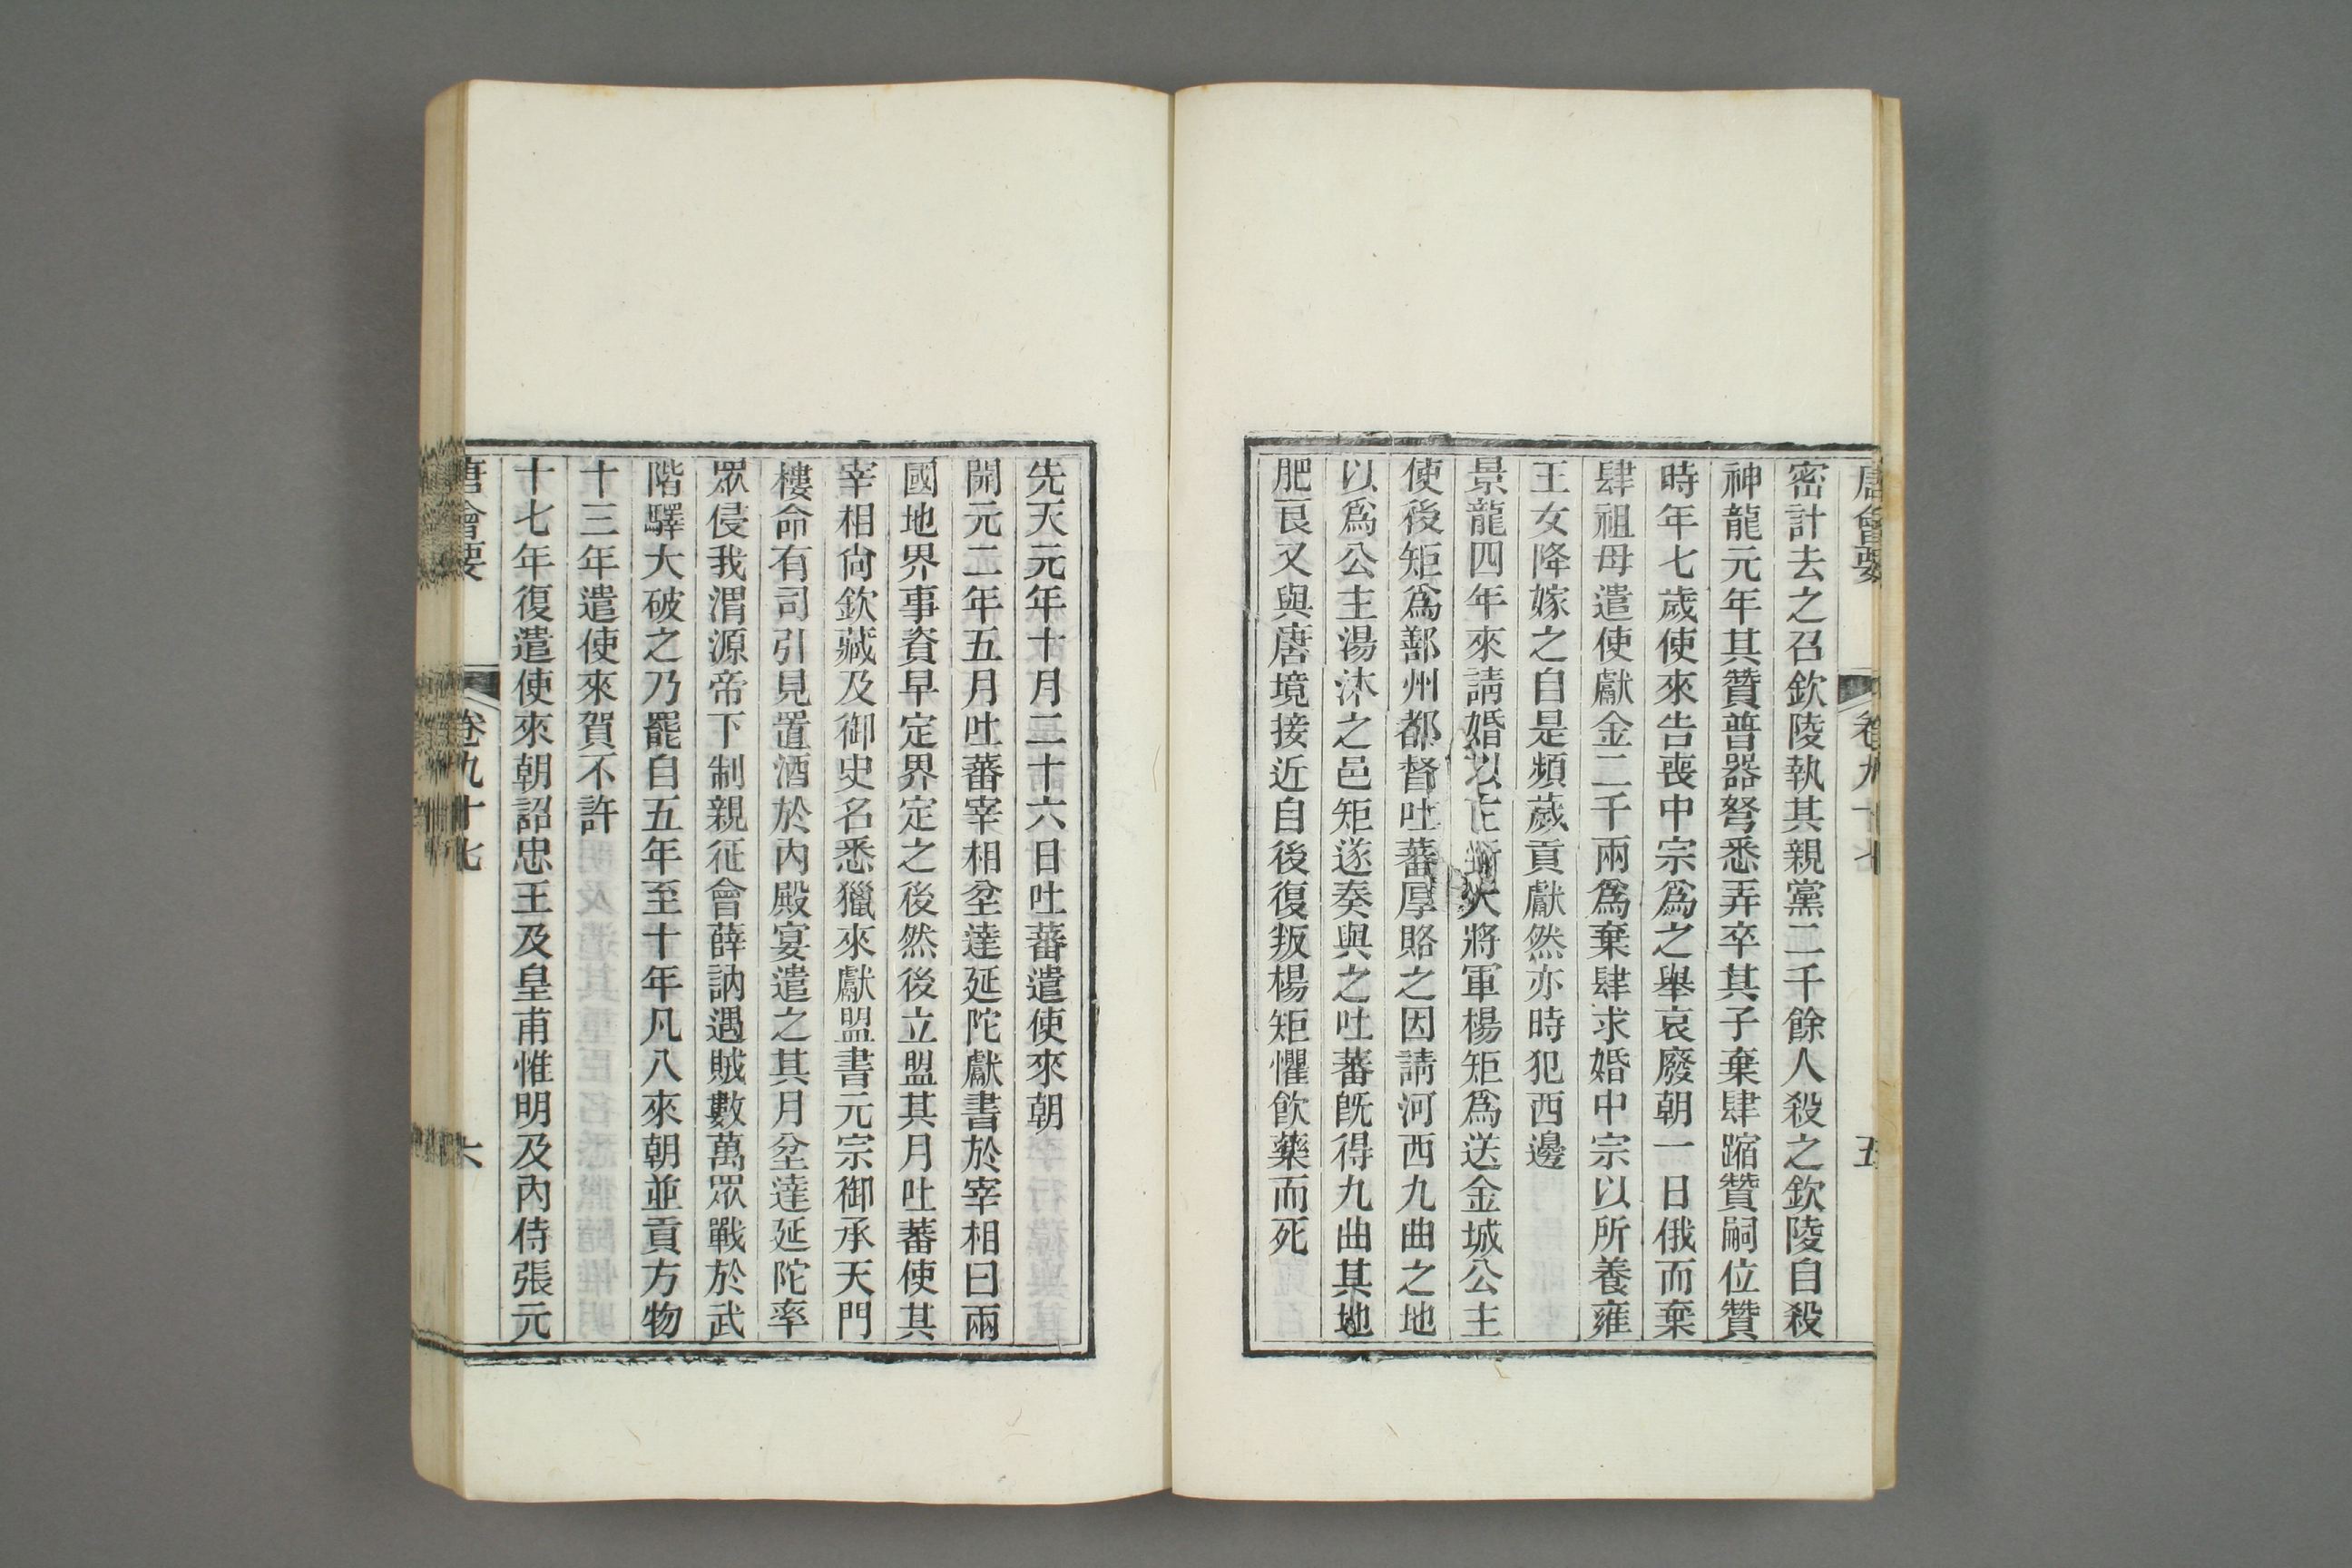 唐會要 卷九十七 五
密計去之召欽陵執其親黨二千餘人殺之欽陵自殺
神龍元年其贊普器弩悉弄卒其子棄肆蹜贊嗣位贊
時年七歲使來告喪中宗爲之舉哀廢朝一日俄而棄
肆祖母遣使獻金二千兩爲棄肆求婚中宗以所養雍
王女降嫁之自是頻歲貢獻然亦時犯西邊
景龍四年來請婚以左衛大將軍楊矩爲送金城公主
使後矩爲鄯州都督吐蕃厚賂之因請河西九曲之地
以爲公主湯沐之邑矩遂奏與之吐蕃旣得九曲其地
肥良又與唐境接近自後復叛楊矩懼飮藥而死
先天元年十月二十六日吐蕃遣使來朝
開元二年五月吐蕃宰相坌達延陀獻書於宰相曰兩
國地界事資早定界定之後然後立盟其月吐蕃使其
宰相尙欽藏及御史名悉獵來獻盟書元宗御承天門
樓命有司引見置酒於內殿宴遣之其月坌達延陀率
眾侵我渭源帝下制親征會薛訥遇賊數萬眾戰於武
階驛大破之乃罷自五年至十年凡八來朝並貢方物
十三年遣使來賀不許
十七年復遣使來朝詔忠王及皇甫惟明及內侍張元
唐會要 卷九十七 六